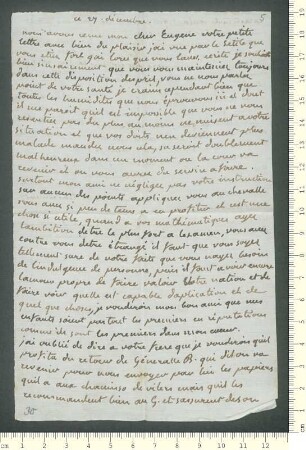 ce 27 decembre. 5
nous avons recu mon cher Eugene votre petite
lettre avec bien du plaisir jai vue par le detaile que
vous etiez fort gai lors que vous laves ecrite je souhaite
bien sincairement que vous vous mainteniez toujours
dans cette disposition desprit, vous ne nous parlez
point de votre santé je crains cependant bien que
toutes les humidités que nous éprouvons ici et dont
il me parait quil est imposible que vous ne vous
resentiez pas du plus au moins ne nuisent a votre
situation et que vos doits nen deviennent plus
malade mandez nous cela, se seroit doublement
malheureux dans un moment ou la cour va
revenir et ou vous aurez du service a faire.
surtout mon ami ne négligez pas votre instruction
sur aucun des points apliquez vous au chevalle
vous avez si peu de tems a en profiter et cest une
chose si utile, quand a vos mathématiques ayez
lambition detre le plus fort a lexamen, vous avez
contre vous detre étranger il faut que vous soyez
tellement sure de votre faits que vous nayez besoin
de lindulgence de personne, puis il faut avoir encore
lamour propre de faire valoir votre nation et de
faire voir quelle est capable daplication et de
quelque chose, je voudrois mon bon ami que mes
enfants soient partout les premiers en réputations
comme ils sont les premiers dans mon coeur.
jai oublié de dire a votre frere que je voudrois quil
profita du retour du Généralle B- qui dit on va
revenir pour nous envoyer par lui les papiers
quil a aux mais quil les
recommandent bien au G. et sassurent de son
30
0 1 2 3 4 5 6 7 8 9 10 11 12